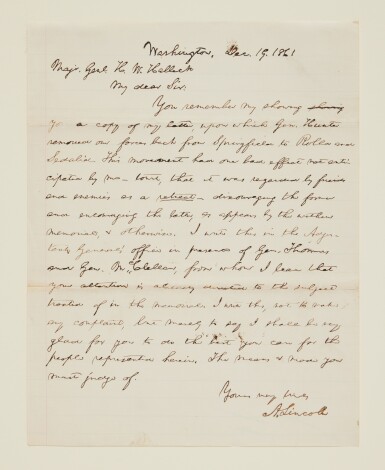 Washington, Dec. 19. 1861
Majr. Genl. H. W. Halleck
My dear Sir:
You remember my showing showing
you a copy of my letter upon which Gen. Hunter
removed our force back from Springfield to Rolla and
Sedalia. This movement has one bad effect not anti-
cipated by me — towit, that it was regarded by friends
and enemies as a retreat — discouraging the former
and encouraging the latter, as appears by the within
memorial, & otherwise. I write this in the Adju-
tant General's office in presence of Gen. Thomas
and Gen. McClellan, from whom I learn that
your attention is already devoted to the subject
treated of in the memorial. I write this, not to make
any complaint, but merely to say I shall be very
glad for you to do the best you can for the
people represented herein. The means & mode you
must judge of.
Yours very truly
A. Lincoln